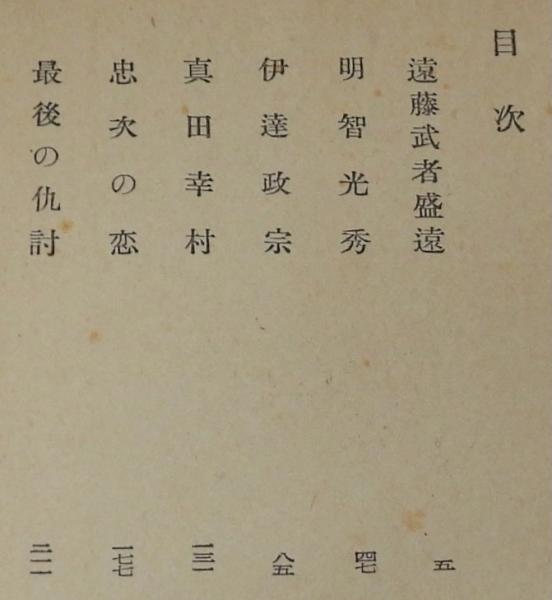 目次
遠藤武者盛遠 五
明智光秀 四七
伊達政宗 八五
真田幸村 一三一
忠次の恋 一七七
最後の仇討 二一一